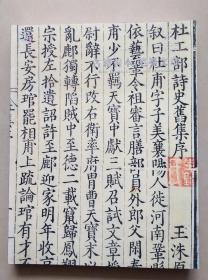 杜工部詩史舊集序
王洙
叙曰杜甫字子美襄陽人徙河南鞏
依藝鞏令祖審言膳部員外郎父閑
甫少不羈天寶中獻三賦召試文章
尉辭不行改右衛率府冑曹天寶末
亂鄜獨轉陷賊中至德二載竄歸鳳
宗授左拾遺詔許至鄜迎家明年收京
還長安房琯罷相甫上疏論琯有才